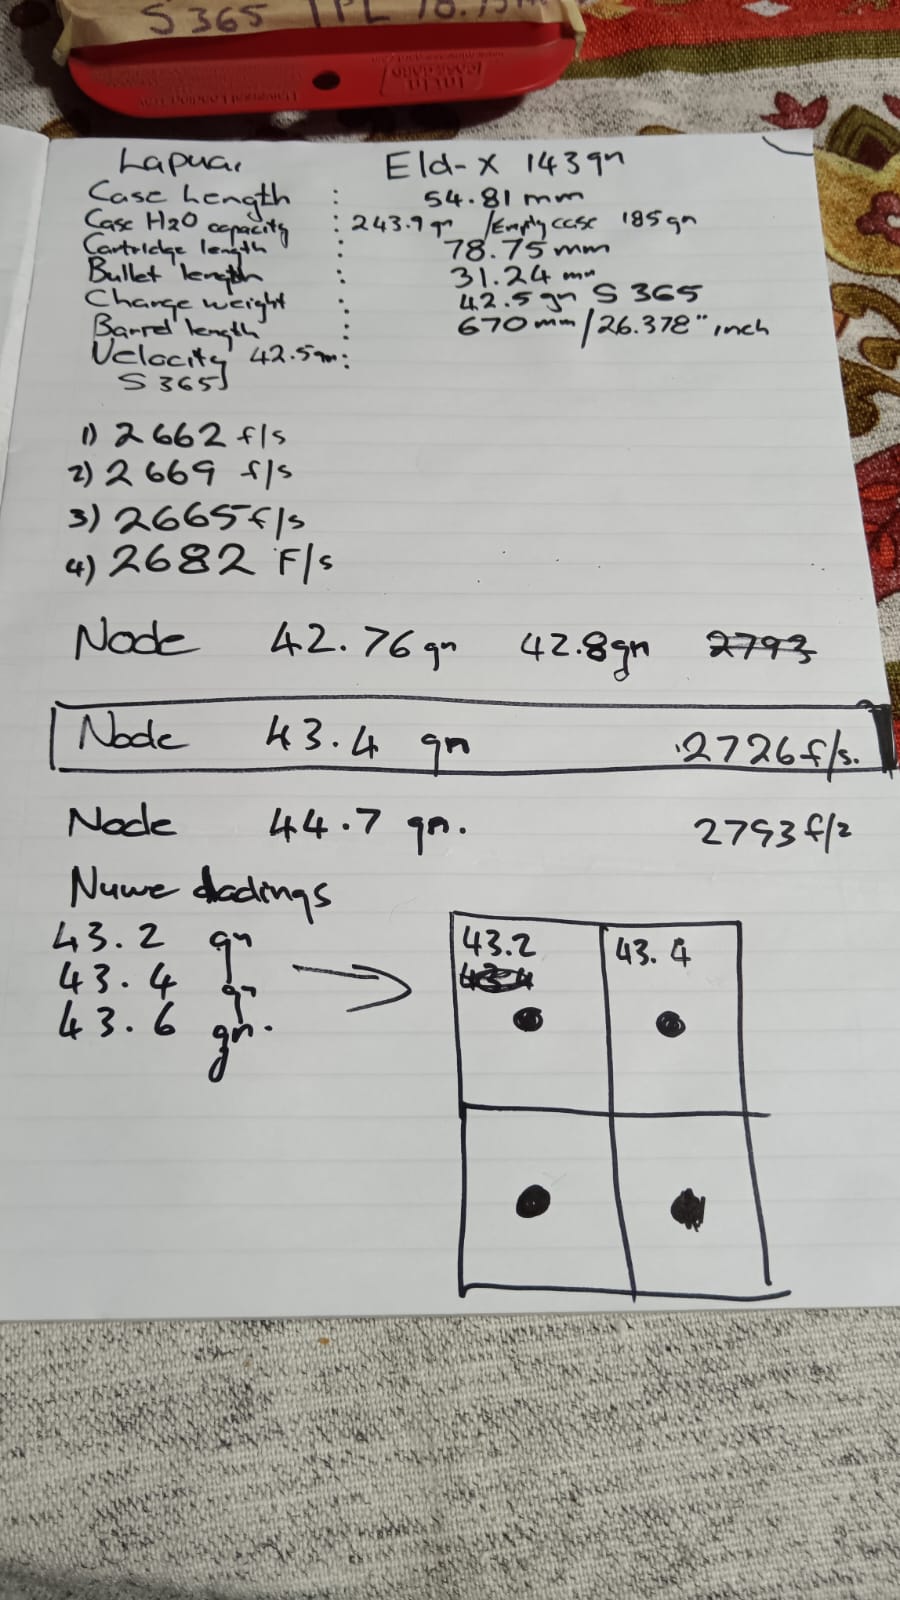 S365 TPL 78.75m
Lapua. Eld-X 143gn
Case Length : 54.81 mm
Case H2O capacity : 243.9 gn / Empty case 185 gn
Cartridge length : 78.75 mm
Bullet length : 31.24 mm
Charge weight : 42.5 gn S 365
Barrel length : 670 mm / 26.378" inch
Velocity 42.5gn :
S 365
1) 2662 f/s
2) 2669 f/s
3) 2665 f/s
4) 2682 F/s
Node 42.76 gn 42.8gn 2793
Node 43.4 gn 2726 f/s.
Node 44.7 gn. 2793 f/s
Nuwe ladings
43.2 gn
43.4 gn
43.6 gn.
43.2
43.4
43.4